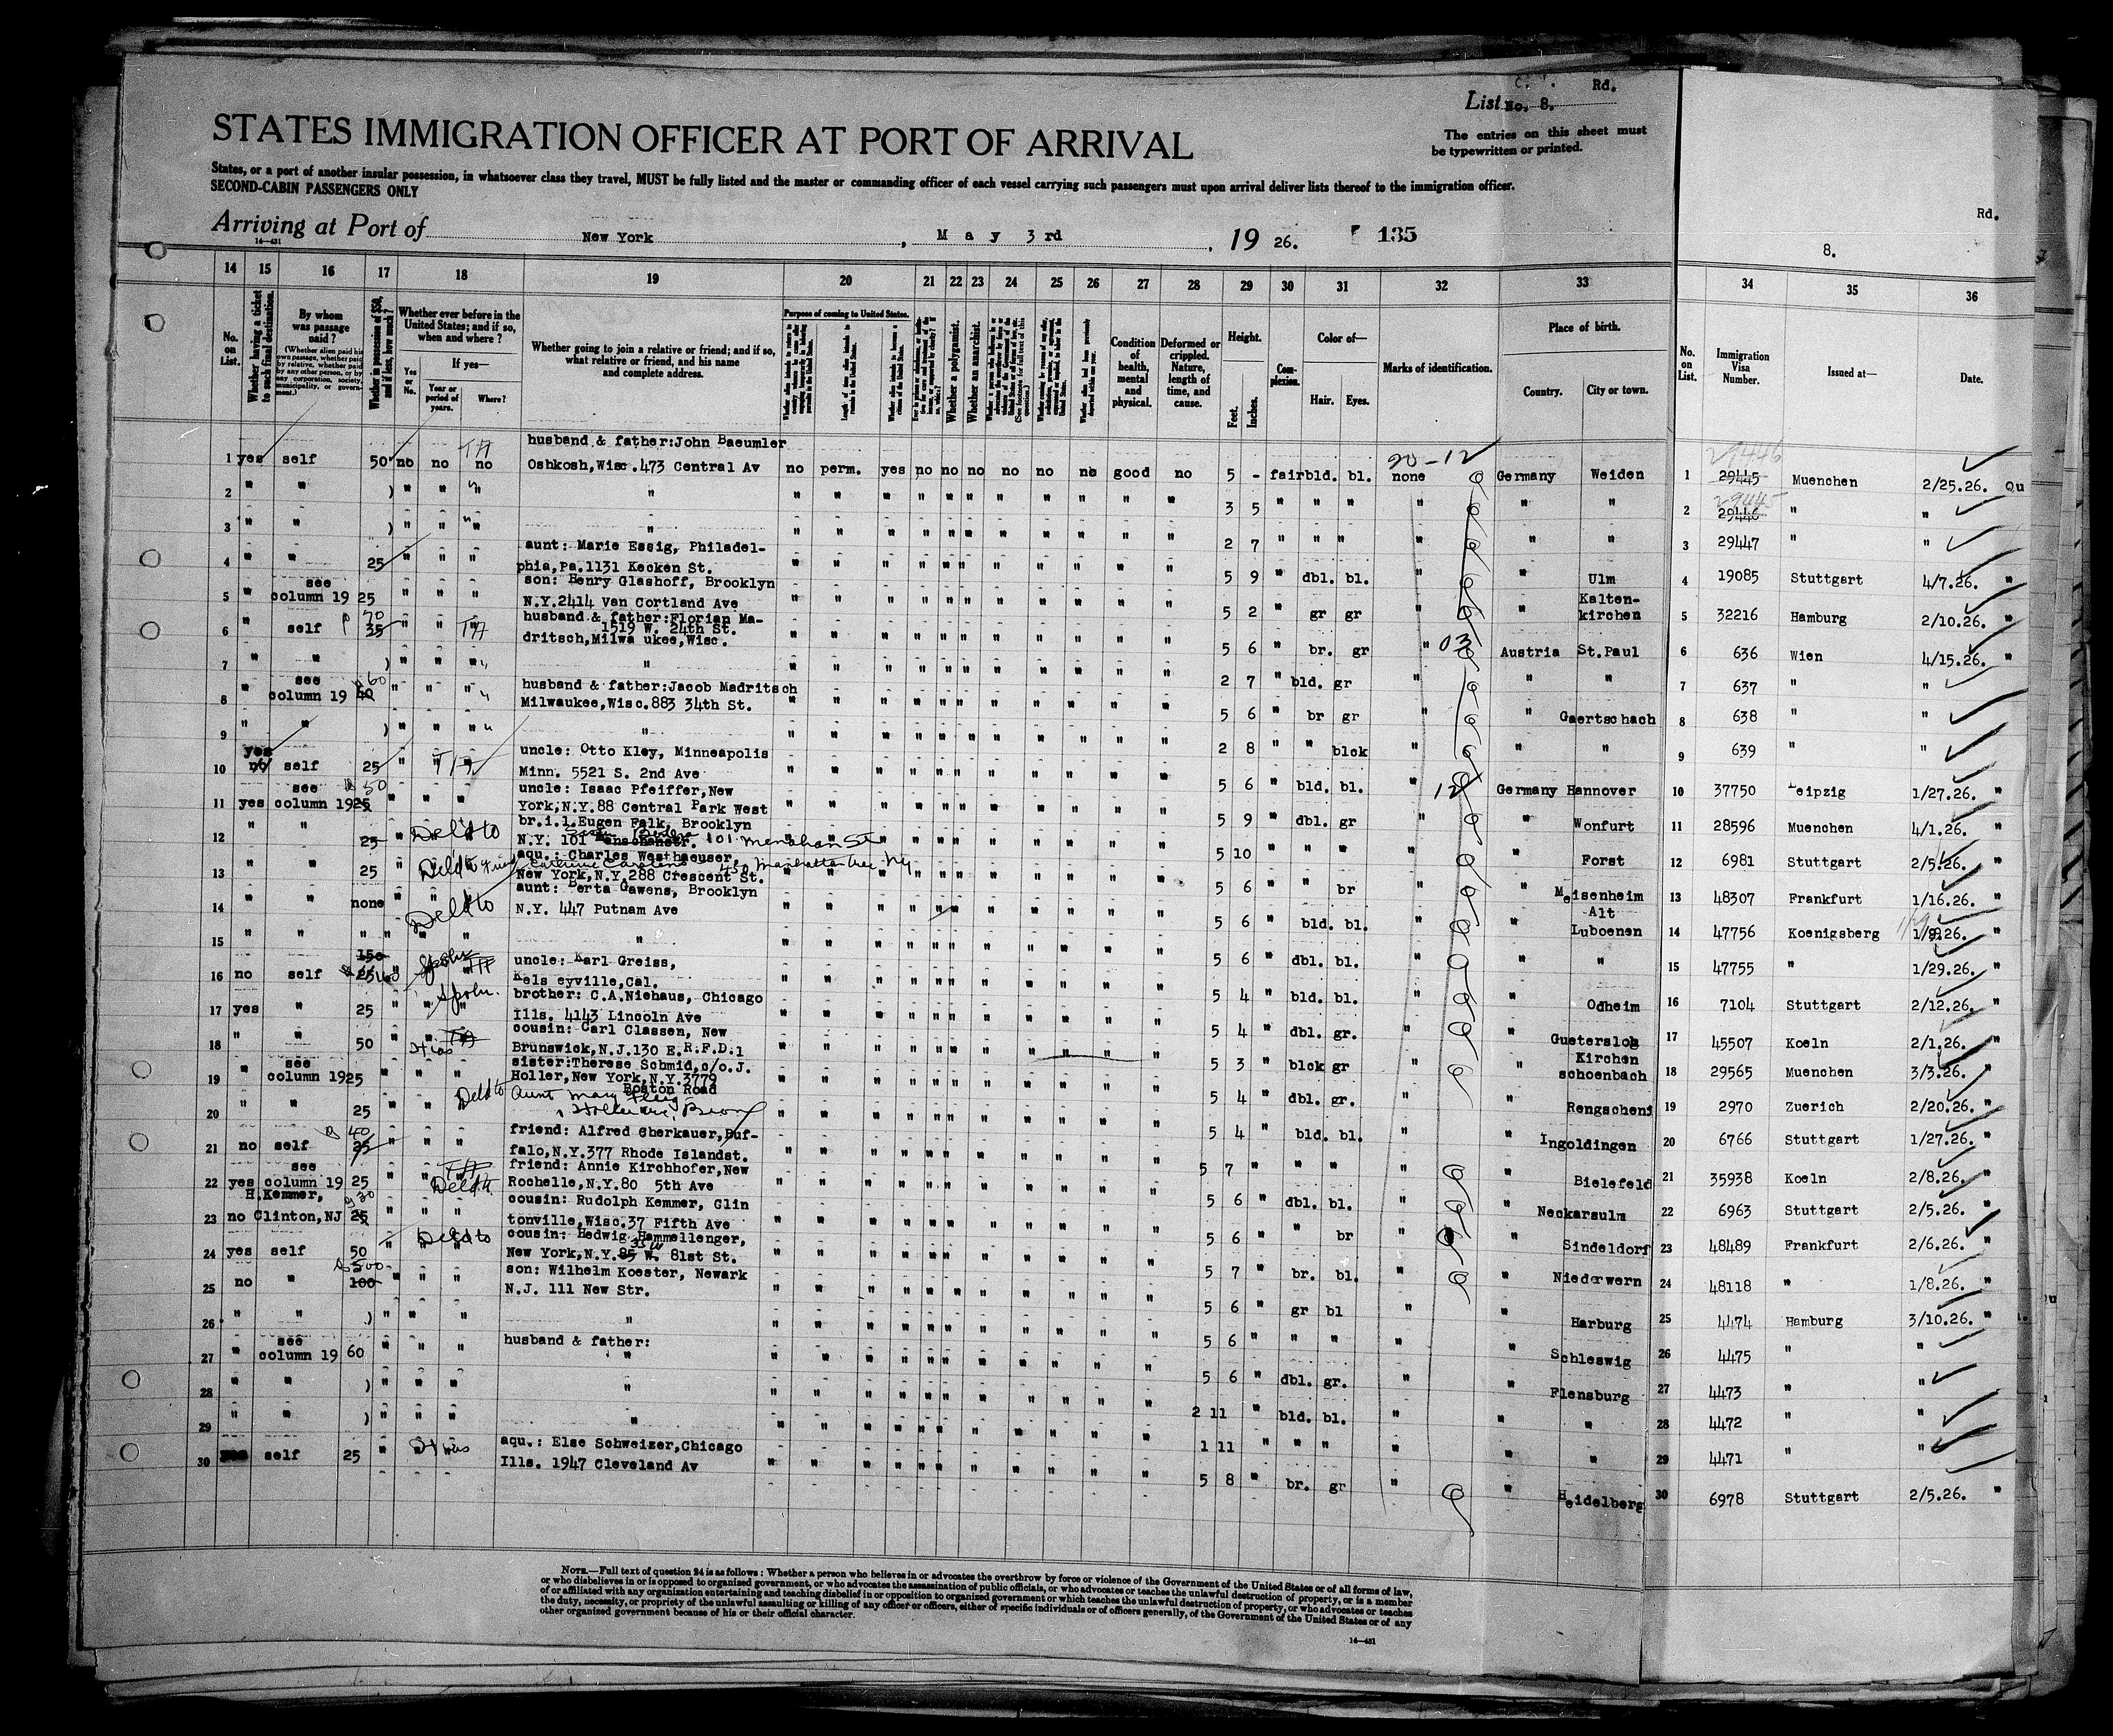 Rd.
List No. 8.
STATES IMMIGRATION OFFICER AT PORT OF ARRIVAL
The entries on this sheet must
be typewritten or printed.
States, or a port of another insular possession, in whatsoever class they travel, MUST be fully listed and the master or commanding officer of each vessel carrying such passengers must upon arrival deliver lists thereof to the immigration officer.
SECOND-CABIN PASSENGERS ONLY
Rd.
Arriving at Port of New York, May 3rd, 1926. 135
14—431
8.
14 15 16 17 18 19 20 21 22 23 24 25 26 27 28 29 30 31 32 33 34 35 36
No. on List.
Whether having a ticket to such final destination.
By whom was passage paid?
(Whether alien paid his own passage, whether paid by relative, whether paid by any other person, or by any corporation, society, municipality, or government.)
Whether in possession of $50, and if less, how much?
Whether ever before in the United States; and if so, when and where?
Yes or No.
If yes—
Year or period of years.
Where?
Whether going to join a relative or friend; and if so, what relative or friend, and his name and complete address.
Purpose of coming to United States.
Length of time alien intends to remain in the United States.
Whether a polygamist.
Whether an anarchist.
Condition of health, mental and physical.
Deformed or crippled. Nature, length of time, and cause.
Height.
Feet.
Inches.
Complexion.
Color of—
Hair.
Eyes.
Marks of identification.
Place of birth.
Country.
City or town.
No. on List.
Immigration Visa Number.
Issued at—
Date.
husband & father:John Baeumler
1 yes self 50 no no no Oshkosh,Wisc.473 Central Av no perm. yes no no no no no no good no 5 - fair bld. bl. none Germany Weiden 1 29445 29446 Muenchen 2/25.26. Qu
20-12
2 " " ) " " " " 3 5 " " " " " " 2 29446 29445 " "
3 " " ) " " " " 2 7 " " " " " " 3 29447 " "
aunt: Marie Essig, Philadel-
4 " " 25 " " " phia,Pa.1131 Kecken St. 5 9 " dbl. bl. " " Ulm 4 19085 Stuttgart 4/7.26. "
son: Henry Glashoff, Brooklyn
5 " see column 19 25 " " " N.Y.2414 Van Cortland Ave 5 2 " gr gr " " Kaltenkirchen 5 32216 Hamburg 2/10.26. "
husband & father:Florian Ma-
1519 W. 24th St.
6 " self 35 70 " " " dritsch,Milwaukee,Wisc. 5 6 " br. gr " 03 Austria St.Paul 6 636 Wien 4/15.26. "
7 " " ) " " " " 2 7 " bld. gr " " " 7 637 " "
husband & father:Jacob Madritsch
8 " see column 19 40 60 " " " Milwaukee,Wisc.883 34th St. 5 6 " br gr " " Gaertschach 8 638 " "
9 " " ) " " " " 2 8 " " blck " " " 9 639 " "
uncle: Otto Kley, Minneapolis
10 no yes self 25 " Minn. 5521 S. 2nd Ave 5 6 " bld. bl. " 12 Germany Hannover 10 37750 Leipzig 1/27.26. "
uncle: Isaac Pfeiffer,New
11 yes see column 19 25 50 " " " York,N.Y.88 Central Park West 5 9 " dbl. gr " " Wonfurt 11 28596 Muenchen 4/1.26. "
br.i.l.Eugen Falk, Brooklyn
12 " " 25 " Deld to N.Y. 101 101 Menahan St 5 10 " " " " " Forst 12 6981 Stuttgart 2/5.26. "
aqu.: Charles Westhaeuser,
450 Manhattan Ave NY
13 " " 25 Deld to New York,N.Y.288 Crescent St. 5 6 " " br " " Meisenheim 13 48307 Frankfurt 1/16.26. "
aunt: Berta Gawens, Brooklyn
14 " " none Deld to N.Y. 447 Putnam Ave 5 6 " bld. bl. " " Alt Luboenen 14 47756 Koenigsberg 1/9.26. "
15 " " " " " " " 5 6 " dbl. bl. " " " 15 47755 " 1/29.26. "
uncle: Karl Greiss,
16 no self 25 150 " Kelseyville,Cal. 5 4 " bld. bl. " " Odheim 16 7104 Stuttgart 2/12.26. "
brother: C.A.Niehaus, Chicago
17 yes " 25 " " " Ills. 4143 Lincoln Ave 5 4 " dbl. gr. " " Guetersloh 17 45507 Koeln 2/1.26. "
cousin: Carl Classen, New
18 " " 50 " Hias Brunswick,N.J.130 E.R.F.D.1 5 3 " blck gr " " Kirchenschoenbach 18 29565 Muenchen 3/3.26. "
sister:Therese Schmid,c/o.J.
19 " see column 19 25 " " " Holler,New York,N.Y.3779
Boston Road 5 4 " dbl. gr. " " Rengschen 19 2970 Zuerich 2/20.26. "
20 " " 25 " " Deld to Aunt Mary 5 4 " bld. bl. " " Ingoldingen 20 6766 Stuttgart 1/27.26. "
friend: Alfred Cherkauer,Buf-
21 no self 25 40 " " " falo,N.Y.377 Rhode Islandst. 5 7 " " " " " Bielefeld 21 35938 Koeln 2/8.26. "
friend: Annie Kirchhofer,New
22 yes see column 19 25 " Deld to Rochelle,N.Y.80 5th Ave 5 6 " dbl. bl. " " Neckarsulm 22 6963 Stuttgart 2/5.26. "
cousin: Rudolph Kemmer, Clin
23 no H.Kemmer, Clinton,NJ 25 30 " " " tonville,Wisc.37 Fifth Ave 5 6 " " br " " Sindeldorf 23 48489 Frankfurt 2/6.26. "
cousin: Hedwig Hammellenger,
24 yes self 50 " Deld to New York,N.Y.85 35 W. 81st St. 5 7 " br. bl. " " Niederwern 24 48118 " 1/8.26. "
son: Wilhelm Koester, Newark
25 no " 100 500 " " " N.J. 111 New Str. 5 6 " gr bl " " Harburg 25 4474 Hamburg 3/10.26. "
26 " " ) " " " " 5 6 " " " " " Schleswig 26 4475 " "
husband & father:
27 " see column 19 60 " " " " 5 6 " dbl. gr. " " Flensburg 27 4473 " "
28 " " ) " " " " 2 11 " bld. bl. " " " 28 4472 " "
29 " " ) " " " " 1 11 " " " " " " 29 4471 " "
aqu.: Else Schweizer,Chicago
30 self 25 " Hias Ills. 1947 Cleveland Av 5 8 " br. gr " " Heidelberg 30 6978 Stuttgart 2/5.26. "
NOTE.—Full text of question 24 is as follows: Whether a person who believes in or advocates the overthrow by force or violence of the Government of the United States or of all forms of law,
or who disbelieves in or is opposed to organized government, or who advocates the assassination of public officials, or who advocates or teaches the unlawful destruction of property, or is a member
of or affiliated with any organization entertaining and teaching disbelief in or opposition to organized government or which teaches the unlawful destruction of property, or who advocates or teaches
the duty, necessity, or propriety of the unlawful assaulting or killing of any officer or officers, either of specific individuals or of officers generally, of the Government of the United States or of any
other organized government because of his or their official character.
14—431